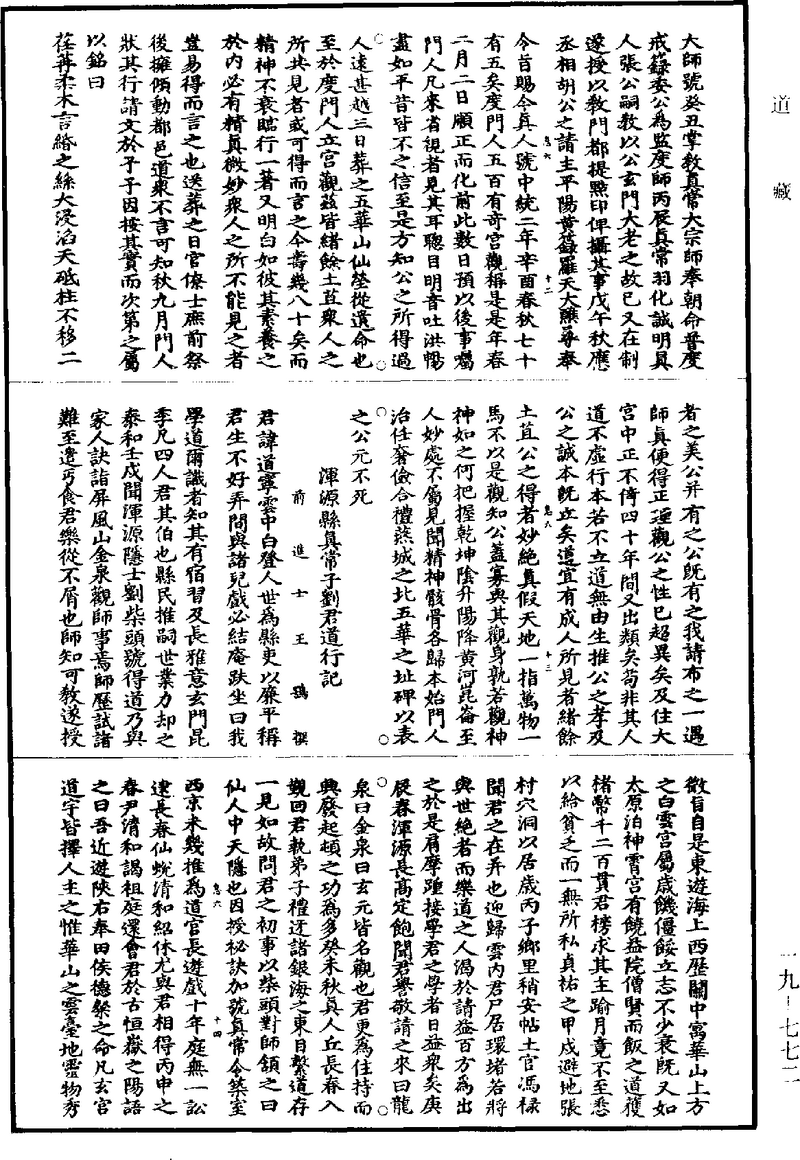 道藏
大師號癸丑掌教真常大宗師奉朝命普度
戒籙委公為監度師丙辰真常羽化誠明真
人張公嗣教以公玄門大老之故已又在制
遂授以教門都提點印俾攝其事戊午秋應
丞相胡公之請主平陽黃籙羅天大醮尋奉
甚六 十二
令旨賜今真人號中統二年辛酉春秋七十
有五矣度門人五百有奇宮觀稱是是年春
二月二日順正而化前此數日預以後事囑
門人凡來省視者見其耳聰目明音吐洪暢
盡如平昔皆不之信至是方知公之所得過
人遠甚越三日葬之五華山仙塋從遺命也
至於度門人立宮觀茲皆緒餘土苴衆人之
所共見者或可得而言之今壽幾八十矣而
精神不衰臨行一著又明白如彼其素養之
於內必有精真微妙衆人之所不能見之者
豈易得而言之也送葬之日官僚士庶前祭
後擁傾動都邑道衆不言可知秋九月門人
狀其行請文於予予因按其實而次第之屬
以銘曰
荏苒柔木言緡之絲大浸滔天砥柱不移二
者之美公并有之公既有之我請布之一遇
師真便得正理觀公之性已超異矣及住大
宮中正不倚四十年間又出類矣苟非其人
道不虛行本若不立道無由生推公之孝及
公之誠本既立矣道宜有成人所見者緒餘
甚六 十三
土苴公之得者妙絕真假天地一指萬物一
馬不以是觀知公蓋寡與其觀身孰若觀神
神如之何把握乾坤陰升陽降黃河崑崙至
人妙處不屬見聞精神骸骨各歸本始門人
治任奢儉合禮燕城之北五華之址碑以表
之公元不死
渾源縣真常子劉君道行記
前進士王鶚撰
君諱道寧雲中白登人世為縣吏以廉平稱
君生不好弄間與諸兒戲必結庵趺坐曰我
學道爾識者知其有宿習及長雅意玄門昆
季凡四人君其伯也縣民推嗣世業力却之
泰和壬戌聞渾源隱士劉柴頭號得道乃與
家人訣詣屏風山金泉觀師事焉師歷試諸
難至遣丐食君樂從不屑也師知可教遂授
微旨自是東遊海上西歷關中寓華山上方
之白雲宮屬歲饑僵餒立志不少衰既又如
太原泊神霄宮有饒益院僧賢而飯之道獲
楮幣千二百貫君榜求其主踰月竟不至悉
以給貧乏而一無所私貞祐之甲戌避地張
村穴洞以居歲丙子鄉里稍安帖土官馮祿
聞君之在弄也迎歸雲內君尸居環堵若將
與世絕者而樂道之人渴於請益百方為出
之於是肩摩踵接學君之學者日益衆矣庚
辰春渾源長高定飽聞君譽敬請之來曰龍
泉曰金泉曰玄元皆名觀也君更為住持而
興廢起頓之功為多癸未秋真人丘長春入
覲回君執弟子禮迓諸銀海之東目繫道存
一見如故問君之初事以柴頭對師頷之曰
仙人中天隱也因授祕訣加號真常令築室
甚六 十四
西京未幾推為道官長遊戲十年庭無一訟
逮長春仙蛻清和紹休尤與君相得丙申之
春尹清和謁祖庭還會君於古恒嶽之陽語
之曰吾近遊陝右奉田侯德燦之命凡玄宮
道宇皆擇人主之惟華山之雲臺地靈物秀
一九—七七二